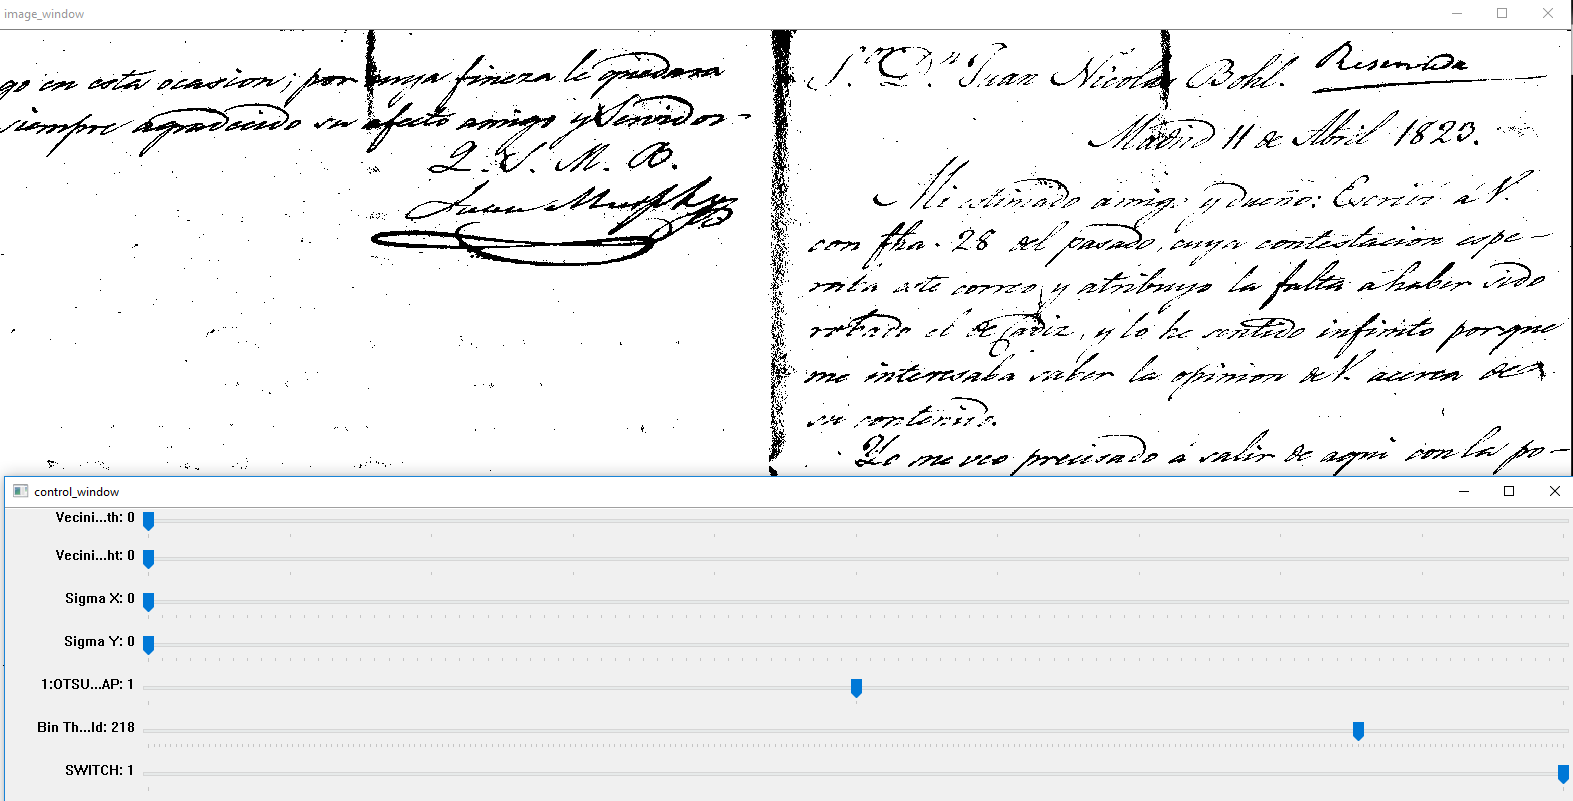 image_window
go en esta ocasion; por cuya fineza le quedara
siempre agradecido su afecto amigo y Servidor-
Q. S. M. B.
Juan Murphy
Sor. Dn. Juan Nicolas Bohl. Reservada
Madrid 11 de Abril 1823.
Mi estimado amigo y dueño: Escribí á V.
con fha. 28 del pasado, cuya contestacion espe-
raba este correo, y atribuyo la falta á haber sido
robado el de Cadiz, y lo he sentido infinito porque
me interesaba saber la opinion de V. acerca de
su contenido.
Yo me veo precisado á salir de aqui con la po-
control_window
Vecini...th: 0
Vecini...ht: 0
Sigma X: 0
Sigma Y: 0
1:OTSU...AP: 1
Bin Th...ld: 218
SWITCH: 1